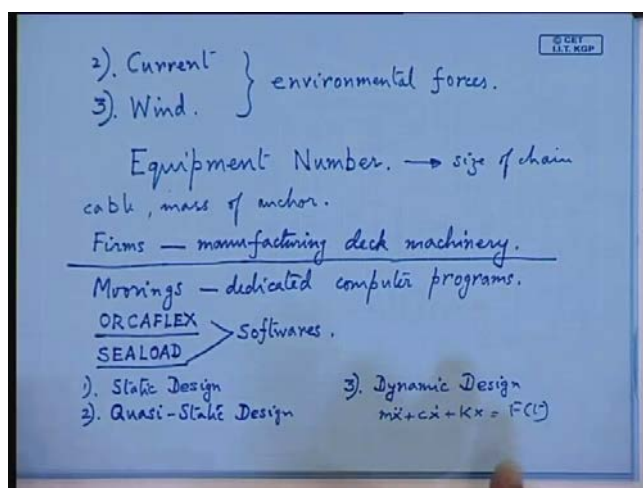 © CET
I.I.T. KGP
2). Current
3). Wind.
} environmental forces.
Equipment Number. → size of chain
cable, mass of anchor.
Firms — manufacturing deck machinery.
Moorings — dedicated computer programs.
ORCAFLEX
SEALOAD
> Softwares.
1). Static Design
2). Quasi-Static Design
3). Dynamic Design
mẍ+cẋ+Kx = F(t)